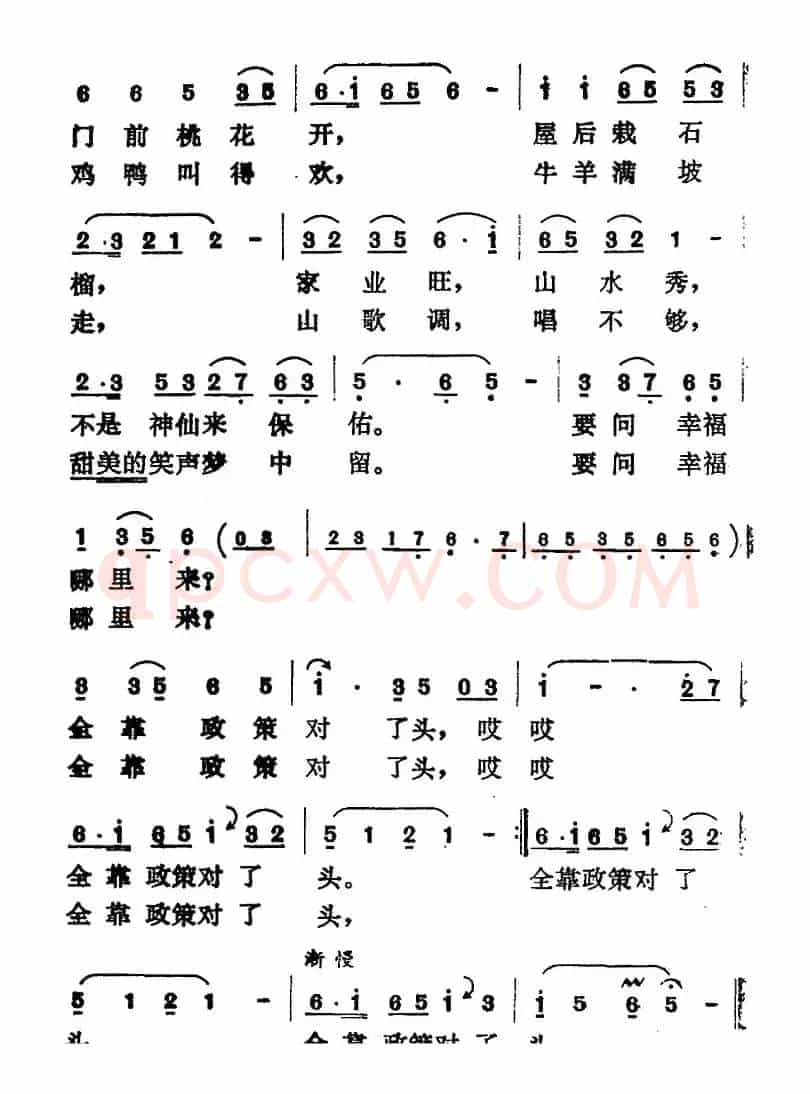 6 6 5 35 | 6·i 65 6 - | i i 65 53 |
门前桃花开， 屋后栽石
鸡鸭叫得欢， 牛羊满坡
2·3 21 2 - | 32 35 6·i | 65 32 1 -
榴， 家业旺， 山水秀，
走， 山歌调， 唱不够，
2·3 53 27 63 | 5 · 6 5 - | 3 37 65
不是神仙来保佑。 要问幸福
甜美的笑声梦中留。 要问幸福
1 35 6 (03 | 23 17 6·7 | 65 35 65 6)
哪里来？
哪里来？
qpcxw.COM
3 35 6 5 | i · 35 03 | i - · 27
全靠政策对了头，哎哎
全靠政策对了头，哎哎
6·i 65 i 32 | 5 1 2 1 - :‖ 6·i 65 i 32
全靠政策对了头。 全靠政策对了
全靠政策对了头，
渐慢
5 1 2 1 - | 6·i 65 i 3 | i 5 6 5 -
头 全靠政策对了头